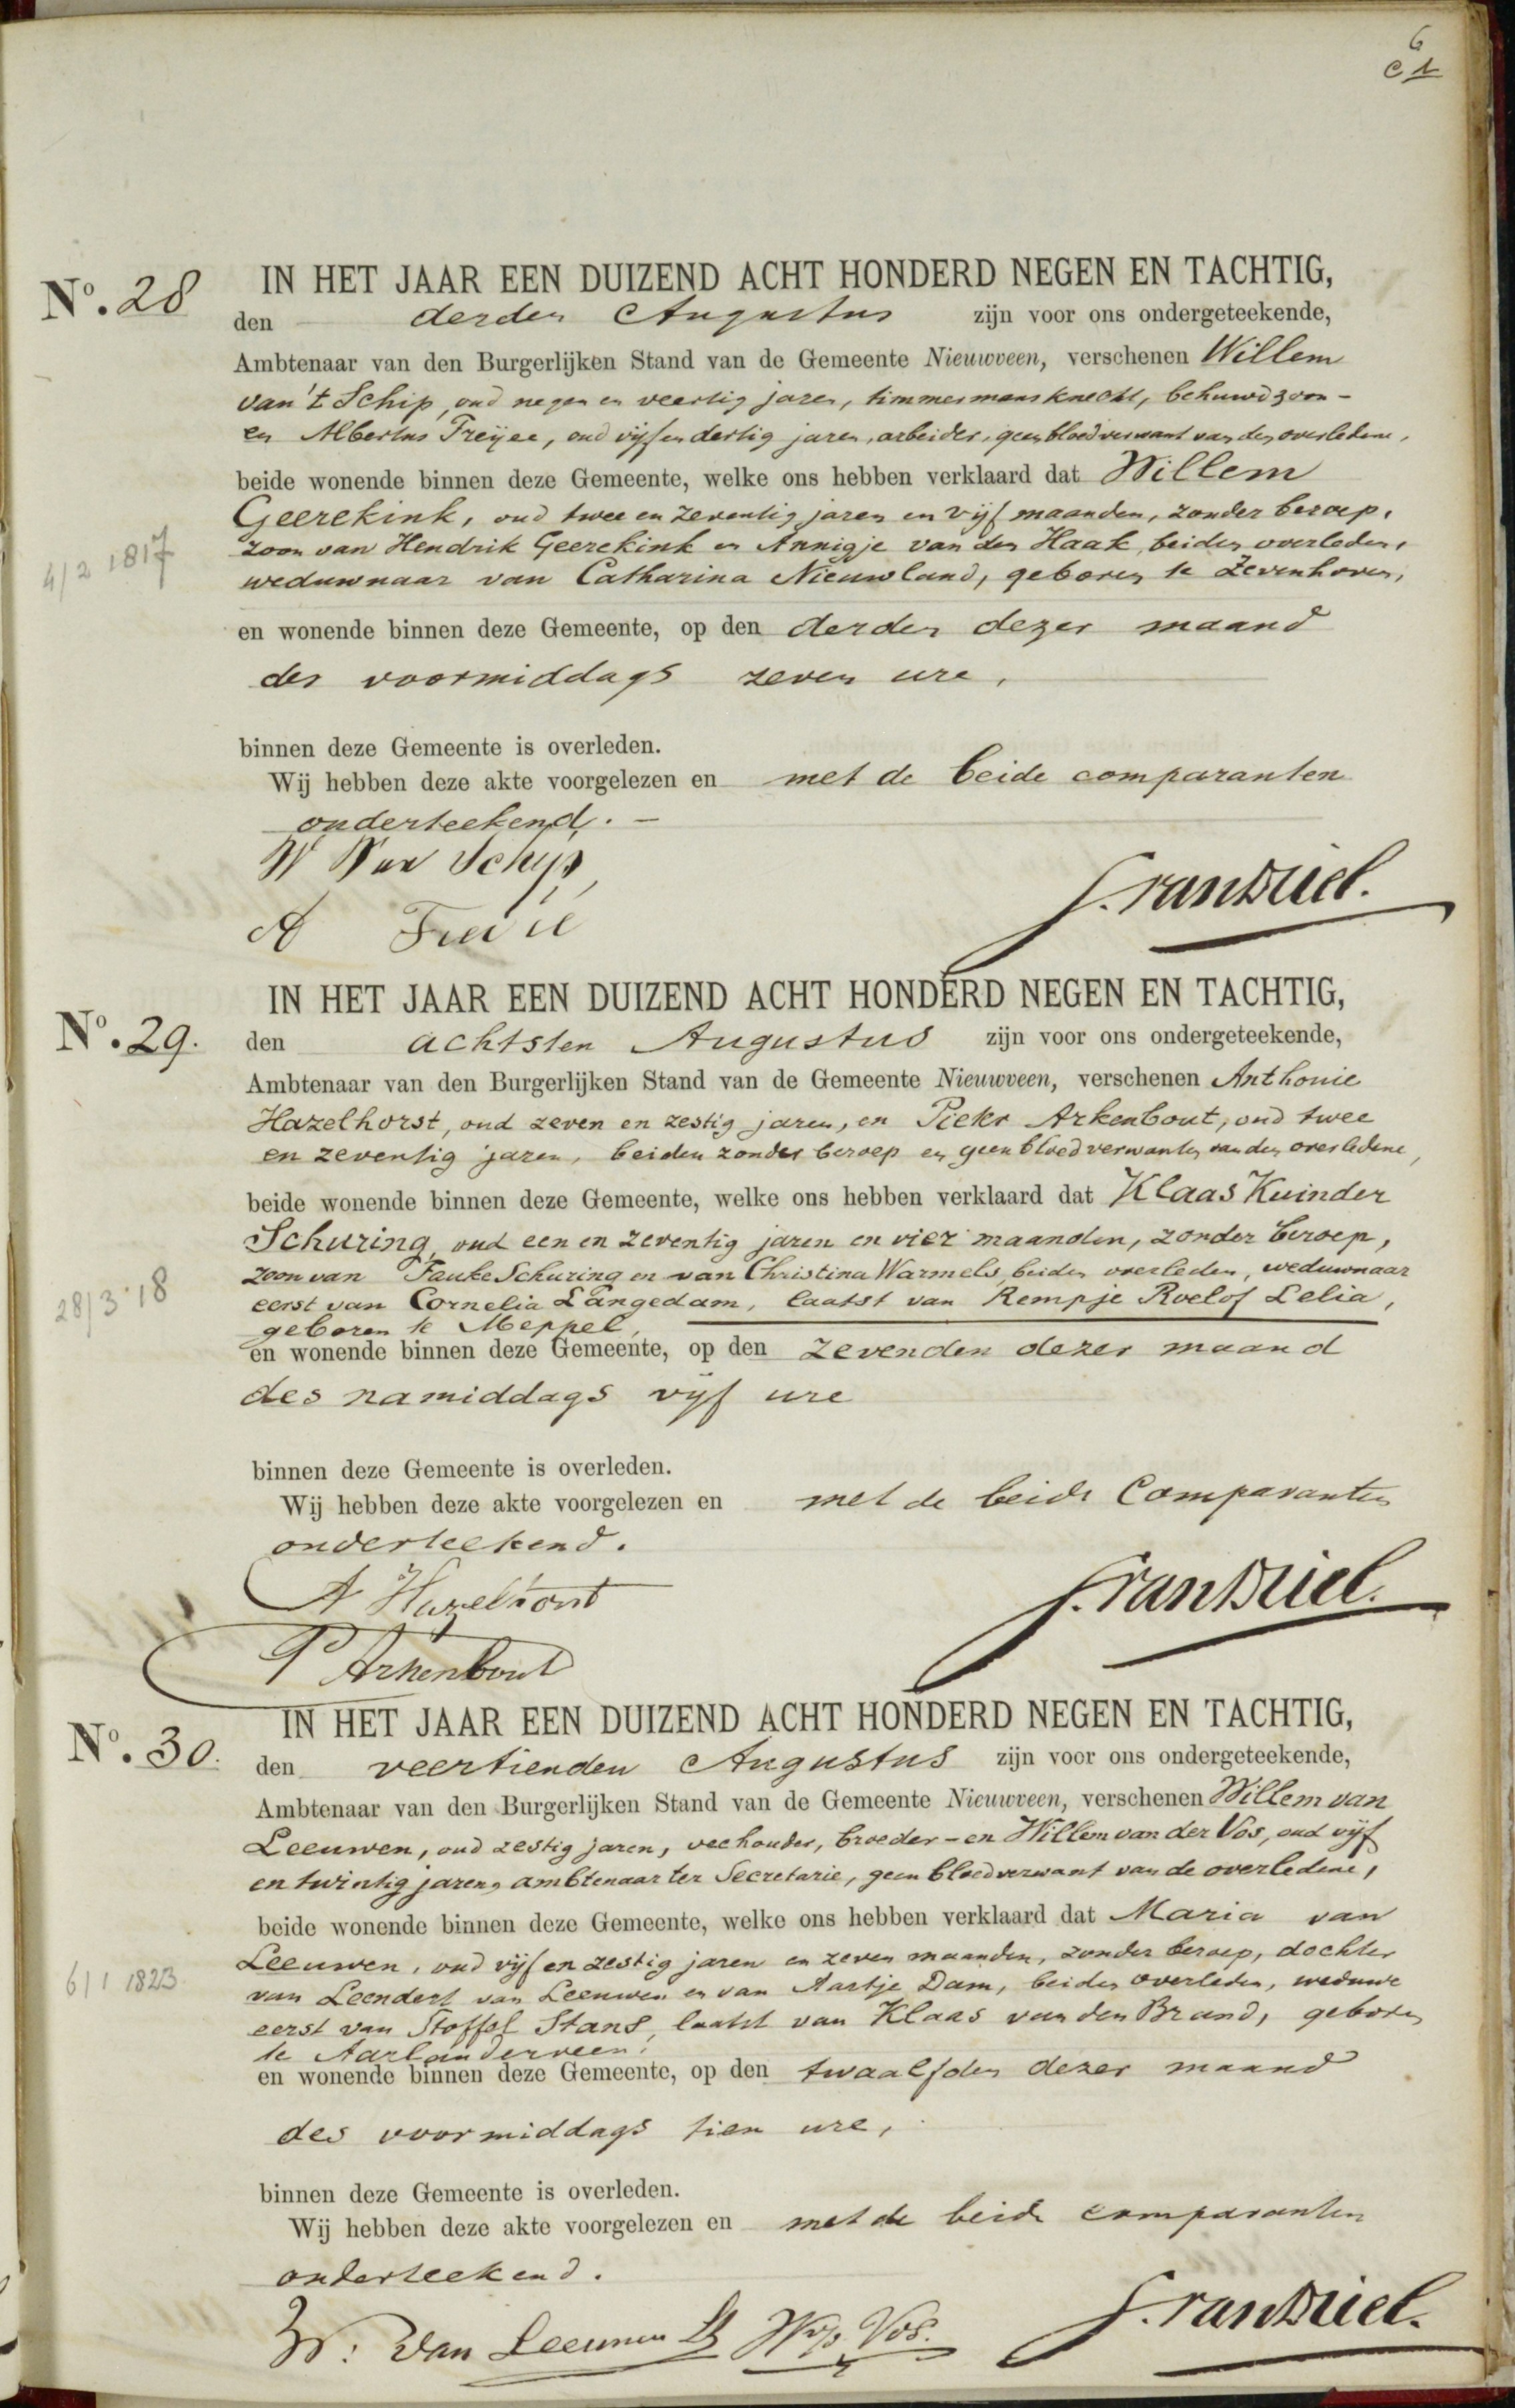 6
C 1
No. 28
IN HET JAAR EEN DUIZEND ACHT HONDERD NEGEN EN TACHTIG,
den derden Augustus zijn voor ons ondergeteekende,
Ambtenaar van den Burgerlijken Stand van de Gemeente Nieuwveen, verschenen Willem
van 't Schip, oud negen en veertig jaren, timmermansknecht, behuwdzoon -
en Albertus Treijee, oud vijf en dertig jaren, arbeider, geen bloedverwant van den overledene,
beide wonende binnen deze Gemeente, welke ons hebben verklaard dat Willem
Geerekink, oud twee en zeventig jaren en vijf maanden, zonder beroep,
zoon van Hendrik Geerekink en Annigje van der Haak, beiden overleden,
4/2 1817
weduwnaar van Catharina Nieuwland, geboren te Zevenhoven,
en wonende binnen deze Gemeente, op den derden dezer maand
des voormiddags zeven ure,
binnen deze Gemeente is overleden.
Wij hebben deze akte voorgelezen en met de beide comparanten
onderteekend. -
W Van Schip
A
No. 29.
IN HET JAAR EEN DUIZEND ACHT HONDERD NEGEN EN TACHTIG,
den achtsten Augustus zijn voor ons ondergeteekende,
Ambtenaar van den Burgerlijken Stand van de Gemeente Nieuwveen, verschenen Anthonie
Hazelhorst, oud zeven en zestig jaren, en Pieter Arkenbout, oud twee
en zeventig jaren, beiden zonder beroep en geen bloedverwanten van den overledene,
beide wonende binnen deze Gemeente, welke ons hebben verklaard dat Klaas Kuinder
Schuring, oud een en zeventig jaren en vier maanden, zonder beroep,
zoon van Fauke Schuring en van Christina Warmels, beiden overleden, weduwnaar
28/3 18
eerst van Cornelia Langedam, laatst van Rempje Roelof Lelia,
geboren te Meppel,
en wonende binnen deze Gemeente, op den zevenden dezer maand
des namiddags vijf ure
binnen deze Gemeente is overleden.
Wij hebben deze akte voorgelezen en met de beide Comparanten
onderteekend.
A Hazelhorst
P Arkenbout
No. 30.
IN HET JAAR EEN DUIZEND ACHT HONDERD NEGEN EN TACHTIG,
den veertienden Augustus zijn voor ons ondergeteekende,
Ambtenaar van den Burgerlijken Stand van de Gemeente Nieuwveen, verschenen Willem van
Leeuwen, oud zestig jaren, veehouder, broeder - en Willem van der Vos, oud vijf
en twintig jaren, ambtenaar ter Secretarie, geen bloedverwant van de overledene,
beide wonende binnen deze Gemeente, welke ons hebben verklaard dat Maria van
Leeuwen, oud vijf en zestig jaren en zeven maanden, zonder beroep, dochter
van Leendert van Leeuwen en van Aartje Dam, beiden overleden, weduwe
6/1 1823.
eerst van Stoffel Stans, laatst van Klaas van den Brand, geboren
te Aarlanderveen,
en wonende binnen deze Gemeente, op den twaalfden dezer maand
des voormiddags tien ure,
binnen deze Gemeente is overleden.
Wij hebben deze akte voorgelezen en met de beide comparanten
onderteekend.
W: van Leeuwen Lz Wvd Vos.